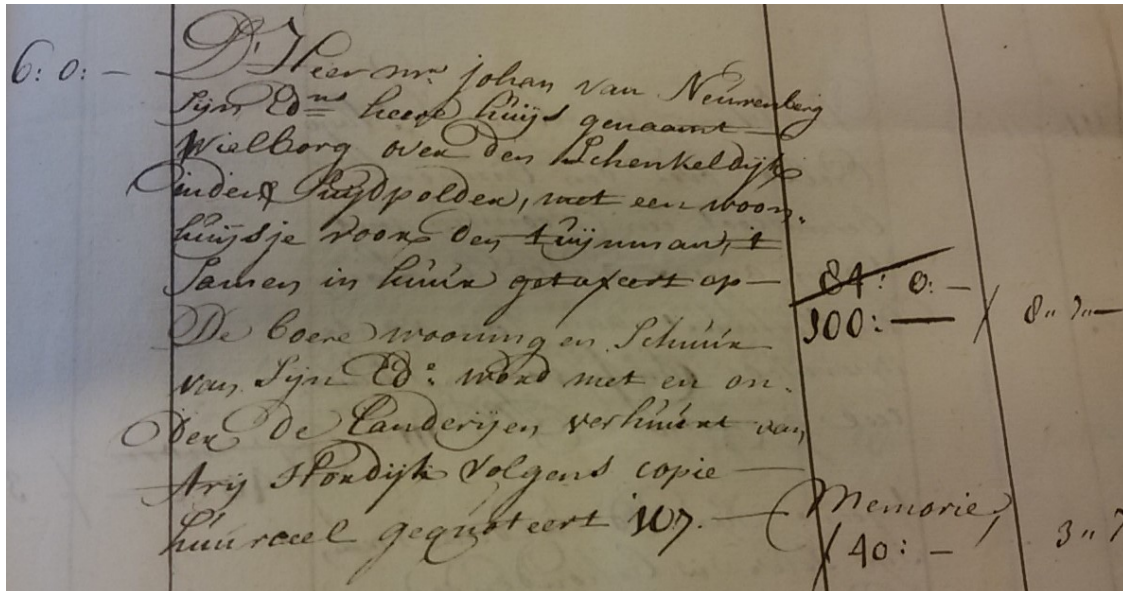 6: 0: — D'Heer mr johan van Neurenberg
Sijn Edns heere huijs genaamt
Wielborg over den Schenkeldijk
inden Suydpolder, met een woon-
huijsje voor den tuijnman, t
samen in huur getaxeert op — 84: 0: —
100: — / 8„ 7„ —
De boere wooning en Schuur
van Sijn Ed: word met en on-
der de Landerijen verhuurt aan
Arij Stordijk volgens copie —
huurceel gequoteert 107. — Memorie
/ 40: — 3„ 7